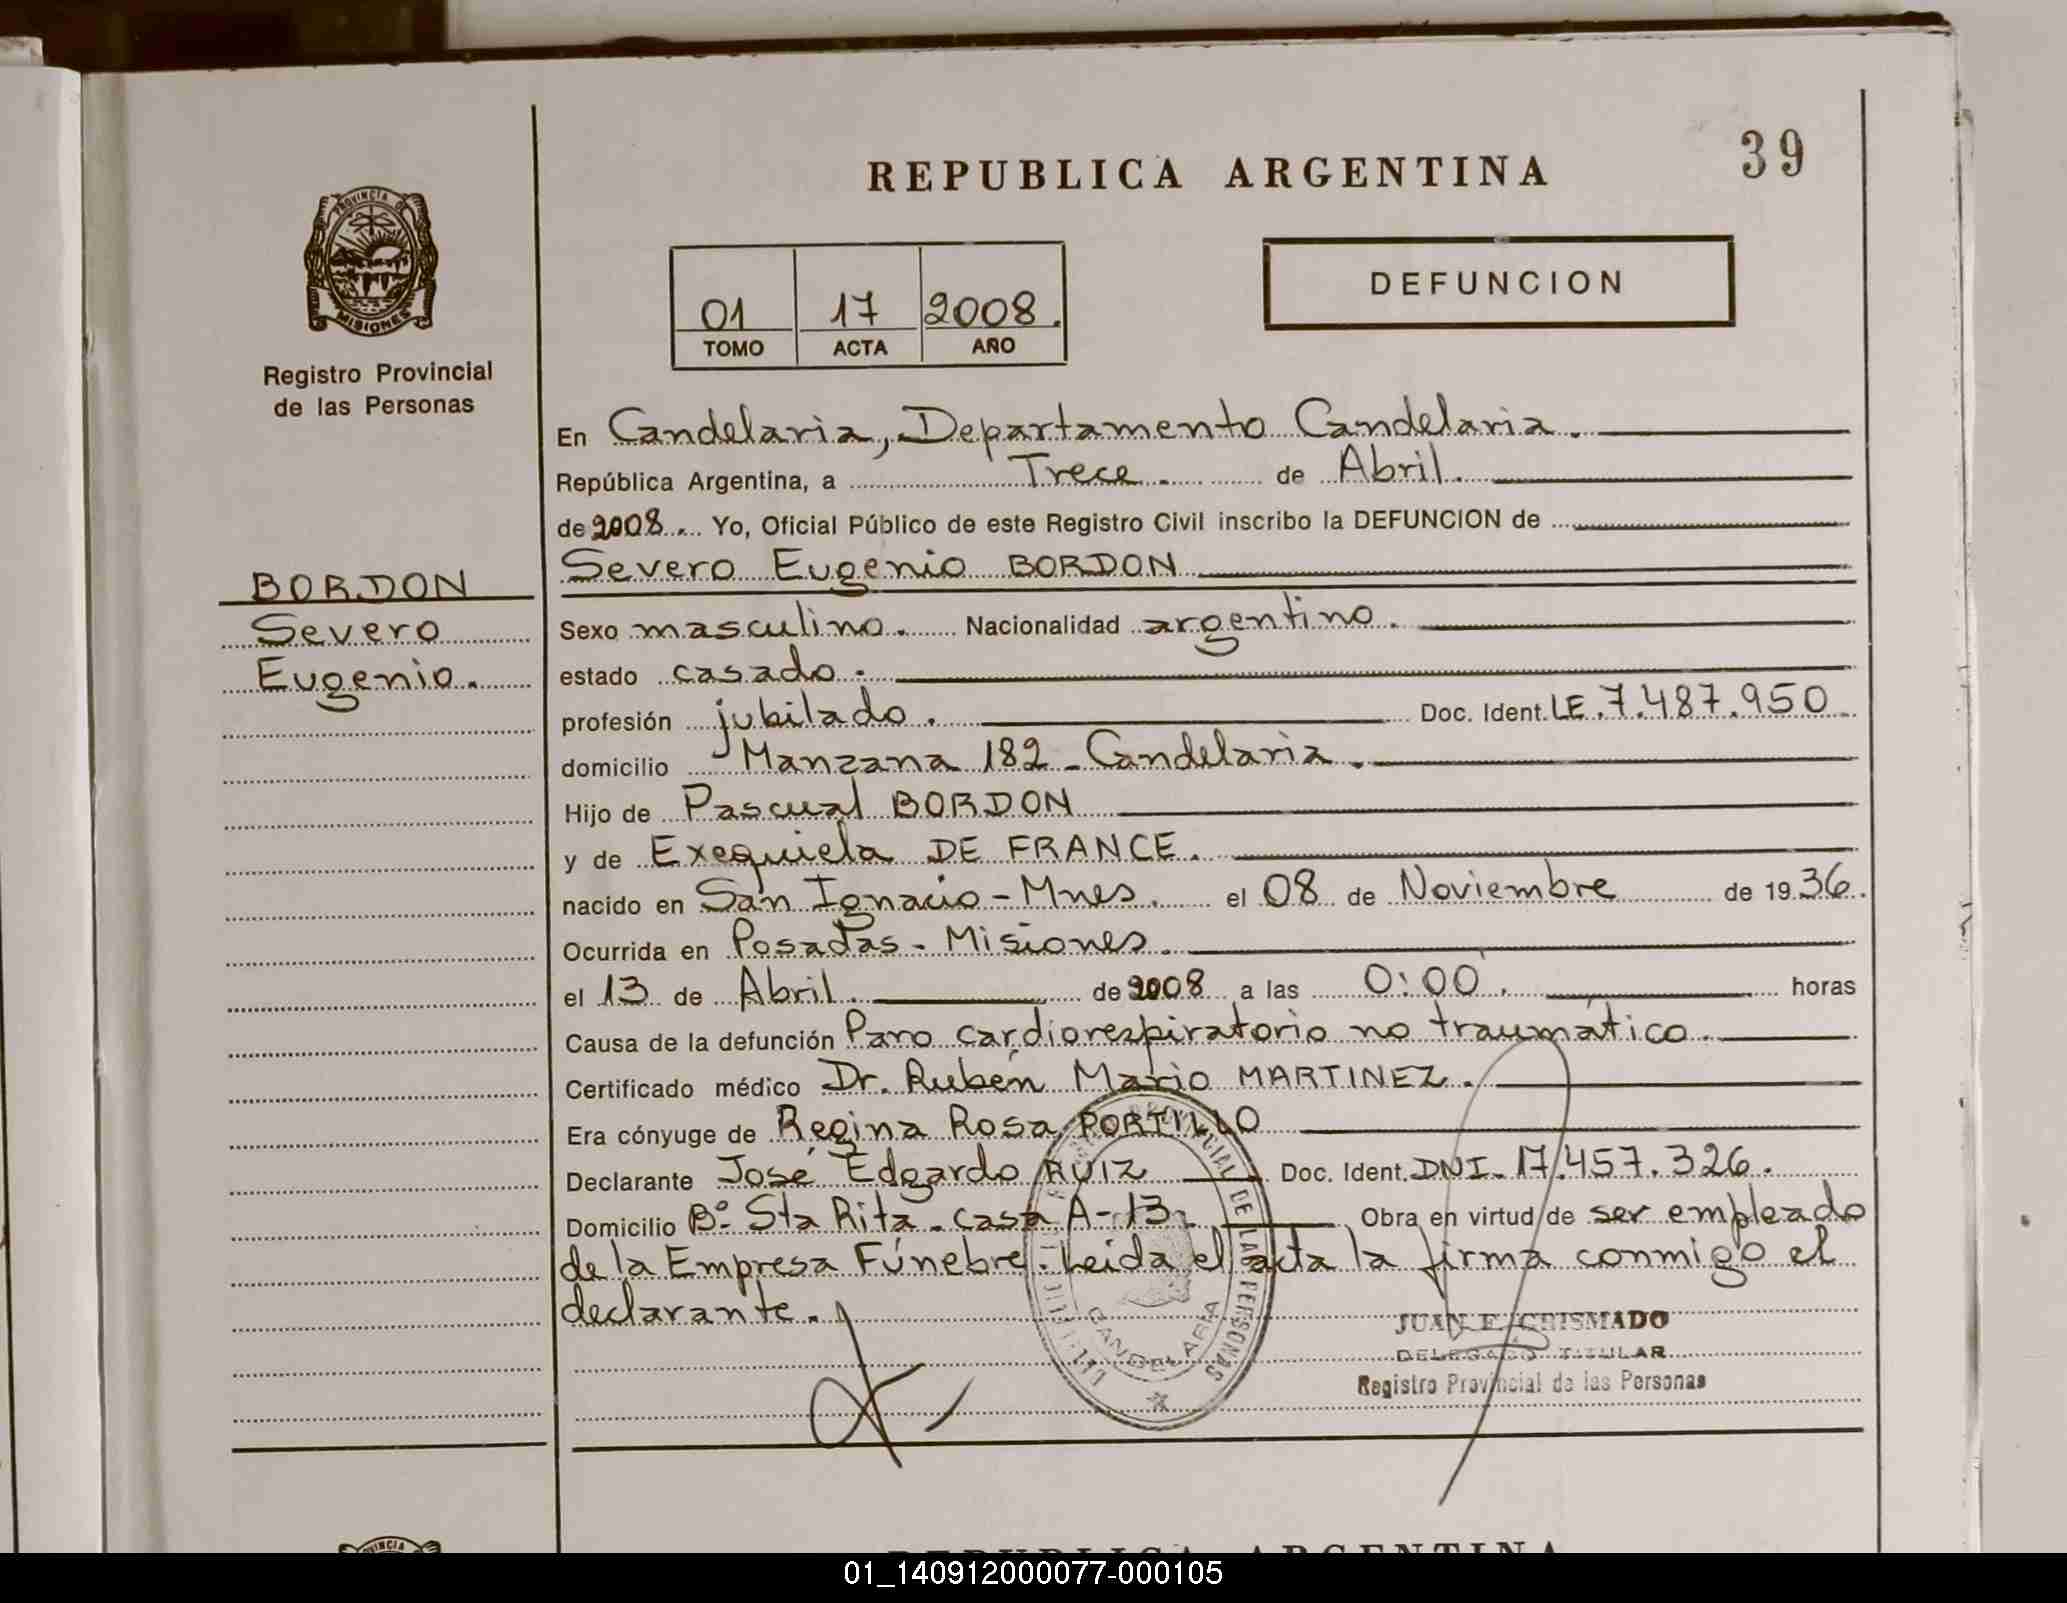 39
REPUBLICA ARGENTINA
PROVINCIA DE
MISIONES
Registro Provincial
de las Personas
01 17 2008.
TOMO ACTA AÑO
DEFUNCION
BORDON
Severo
Eugenio.
En Candelaria, Departamento Candelaria.
República Argentina, a Trece. de Abril.
de 2008. Yo, Oficial Público de este Registro Civil inscribo la DEFUNCION de
Severo Eugenio BORDON
Sexo masculino. Nacionalidad argentino.
estado casado.
profesión jubilado. Doc. Ident. LE. 7.487.950
domicilio Manzana 182 - Candelaria.
Hijo de Pascual BORDON
y de Exequiela DE FRANCE.
nacido en San Ignacio - Mnes. el 08 de Noviembre de 1936.
Ocurrida en Posadas - Misiones.
el 13 de Abril. de 2008 a las 0:00. horas
Causa de la defunción Paro cardiorespiratorio no traumático.
Certificado médico Dr. Rubén Mario MARTINEZ.
Era cónyuge de Regina Rosa PORTILLO
Declarante José Edgardo RUIZ Doc. Ident. DNI- 17.457.326.
Domicilio Bº Sta Rita. casa A-13. Obra en virtud de ser empleado
de la Empresa Fúnebre. Leída el acta la firma conmigo el
declarante.
DE LAS PERSONAS
CANDELARIA
JUAN E. CRISMADO
DELEGADO TITULAR
Registro Provincial de las Personas
REPUBLICA ARGENTINA
01_140912000077-000105